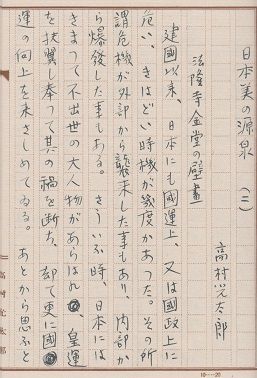 日本美の源泉 (二)
高村光太郎
法隆寺金堂の壁畫
建國以来、日本にも國運上、又は國政上に
危い、きはどい時機が幾度かあつた。その所
謂危機が外部から襲来した事もあり、内部か
ら爆發した事もある。さういふ時、日本には
きまつて不出世の大人物があらはれ 皇運
を扶翼し奉つて其の禍を断ち、却て更に國
運の向上を来さしめてゐる。あとから思ふと
高村光太郎
10—20